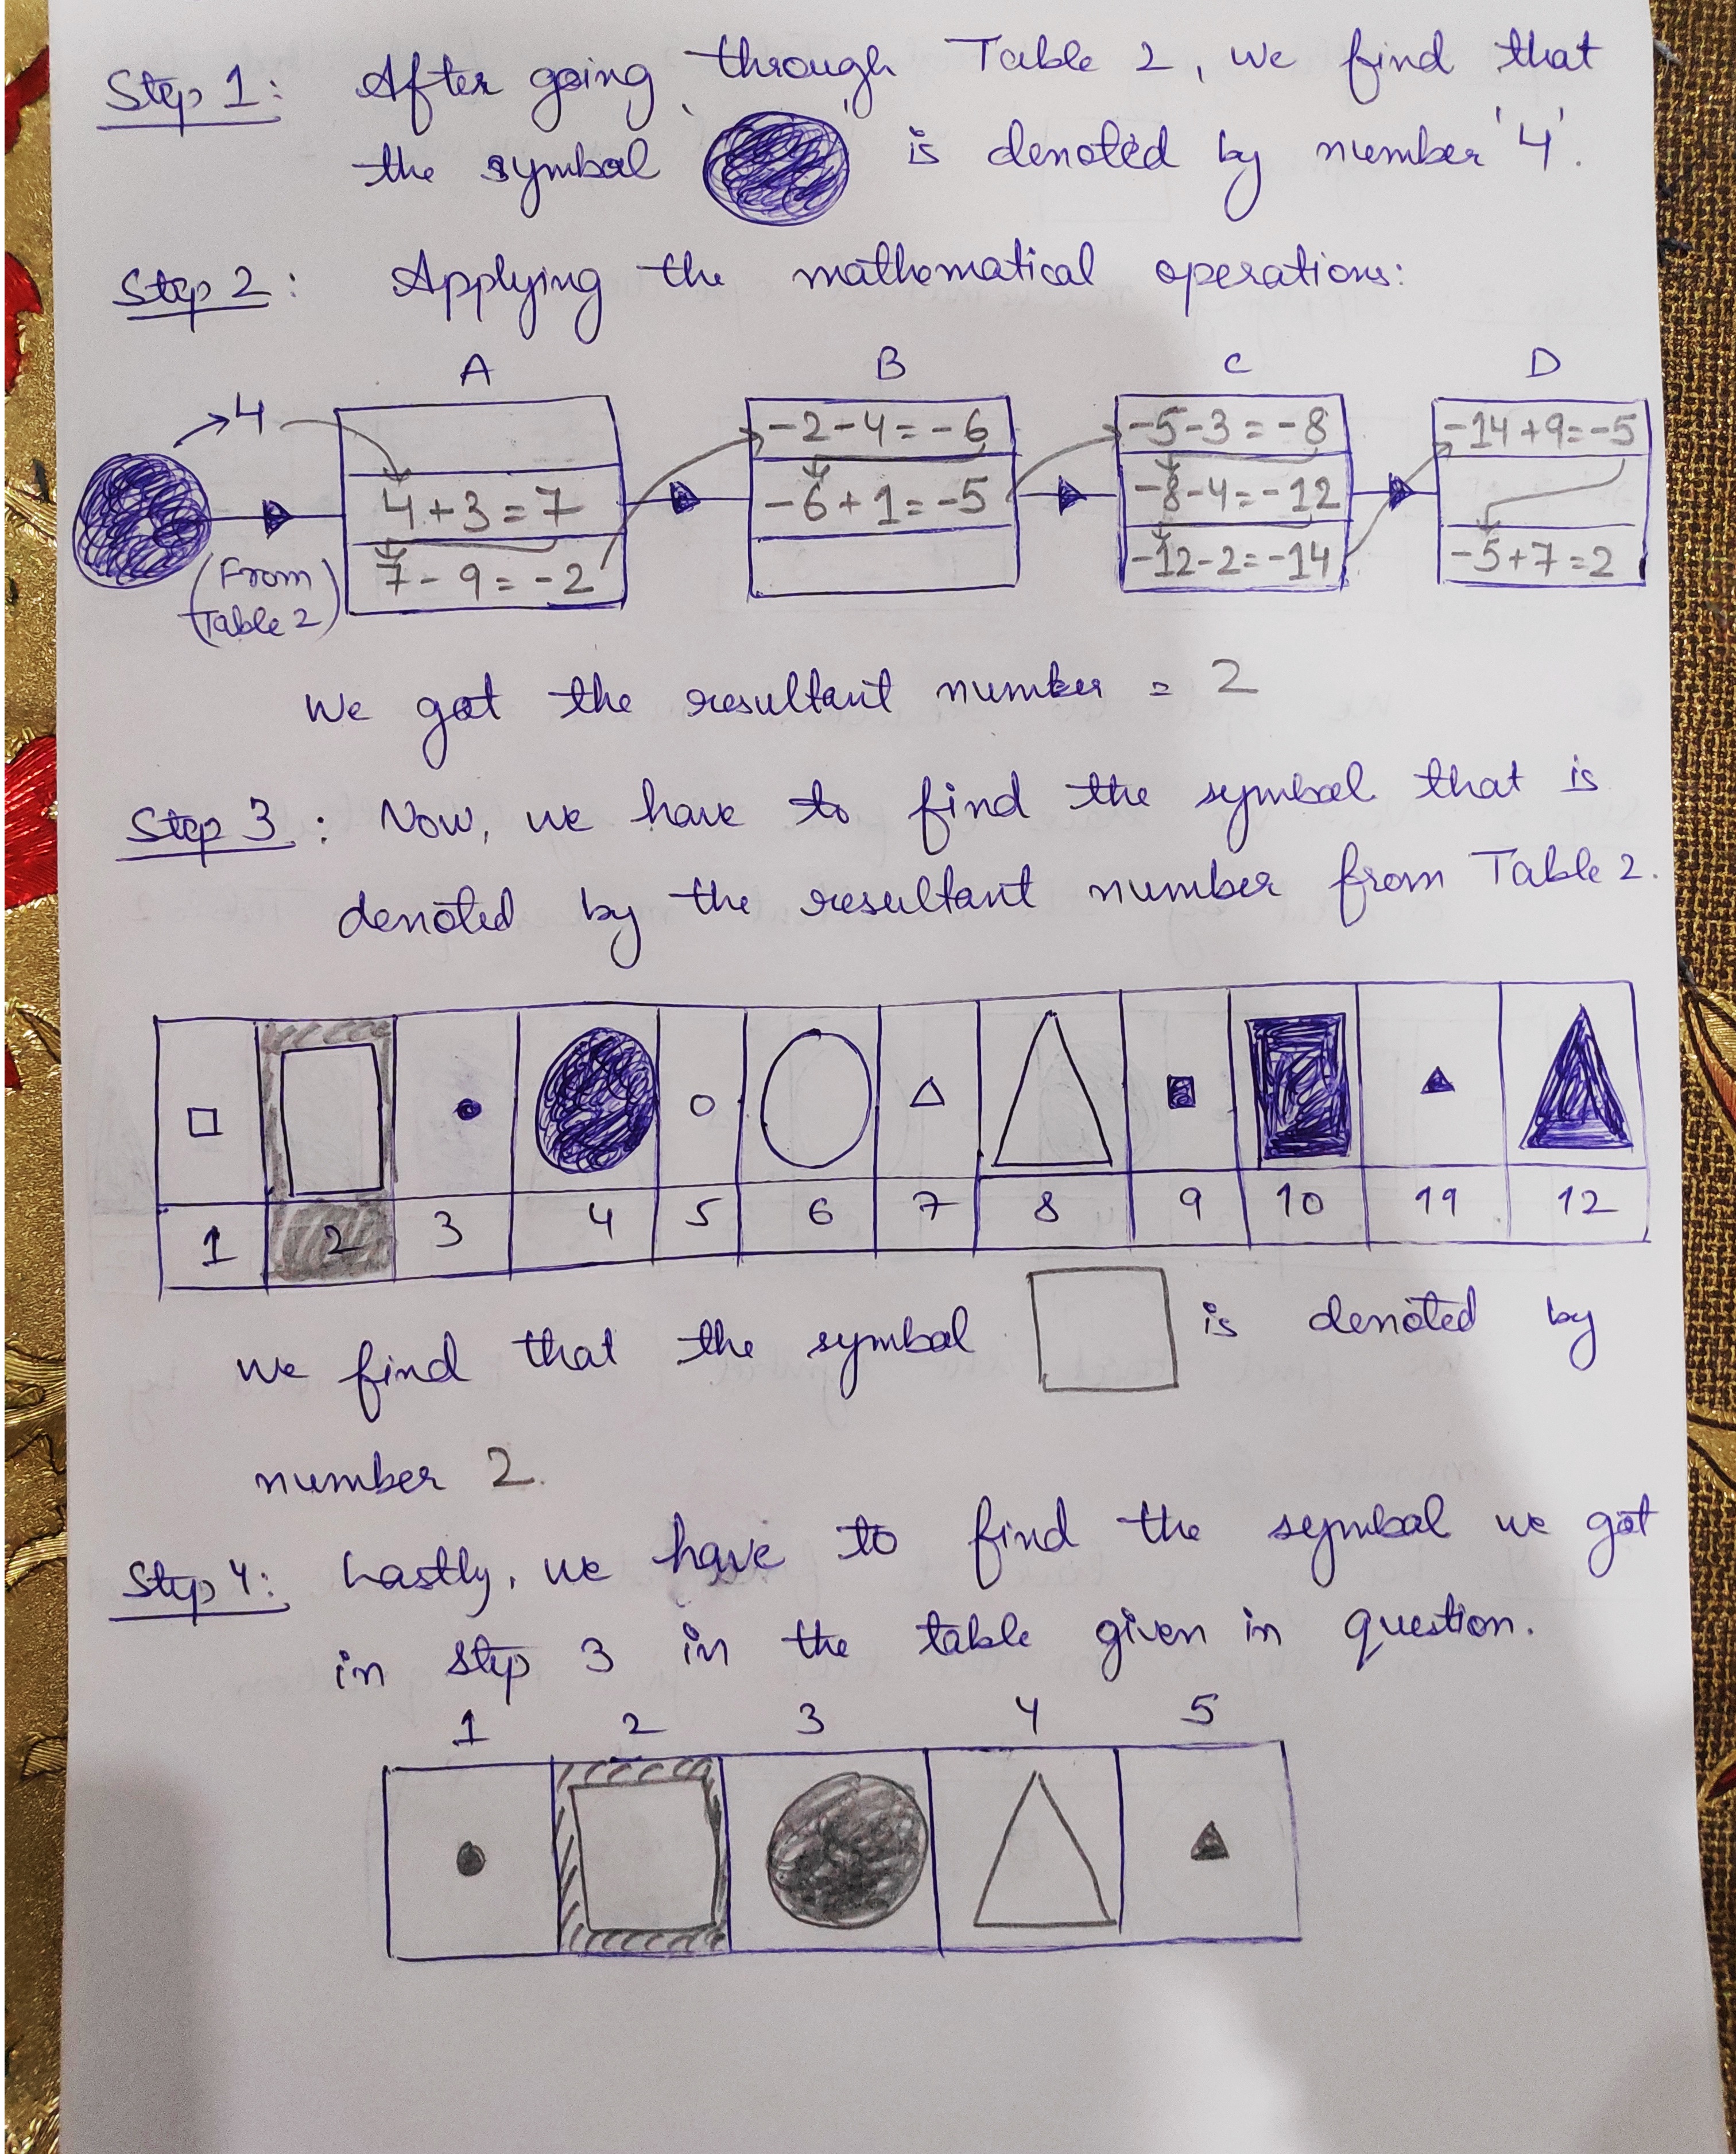 Step 1: After going through Table 2, we find that
the symbol ' ' is denoted by number '4'.
Step 2: Applying the mathematical operations:
A B C D
4
-2-4=-6 -5-3=-8 -14+9=-5
4+3=7 -6+1=-5 -8-4=-12
7-9=-2 -12-2=-14 -5+7=2
(From
Table 2)
We got the resultant number = 2
Step 3: Now, we have to find the symbol that is
denoted by the resultant number from Table 2.
1 2 3 4 5 6 7 8 9 10 11 12
we find that the symbol is denoted by
number 2.
Step 4: Lastly, we have to find the symbol we got
in step 3 in the table given in question.
1 2 3 4 5